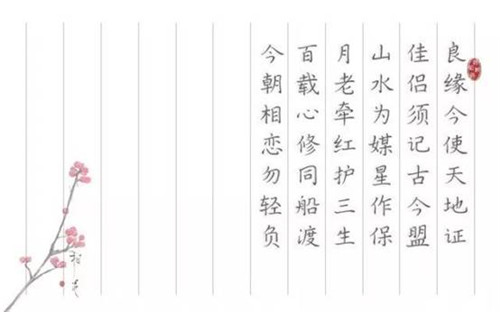 良缘今使天地证
佳侣须记古今盟
山水为媒星作保
月老牵红护三生
百载心修同船渡
今朝相恋勿轻负